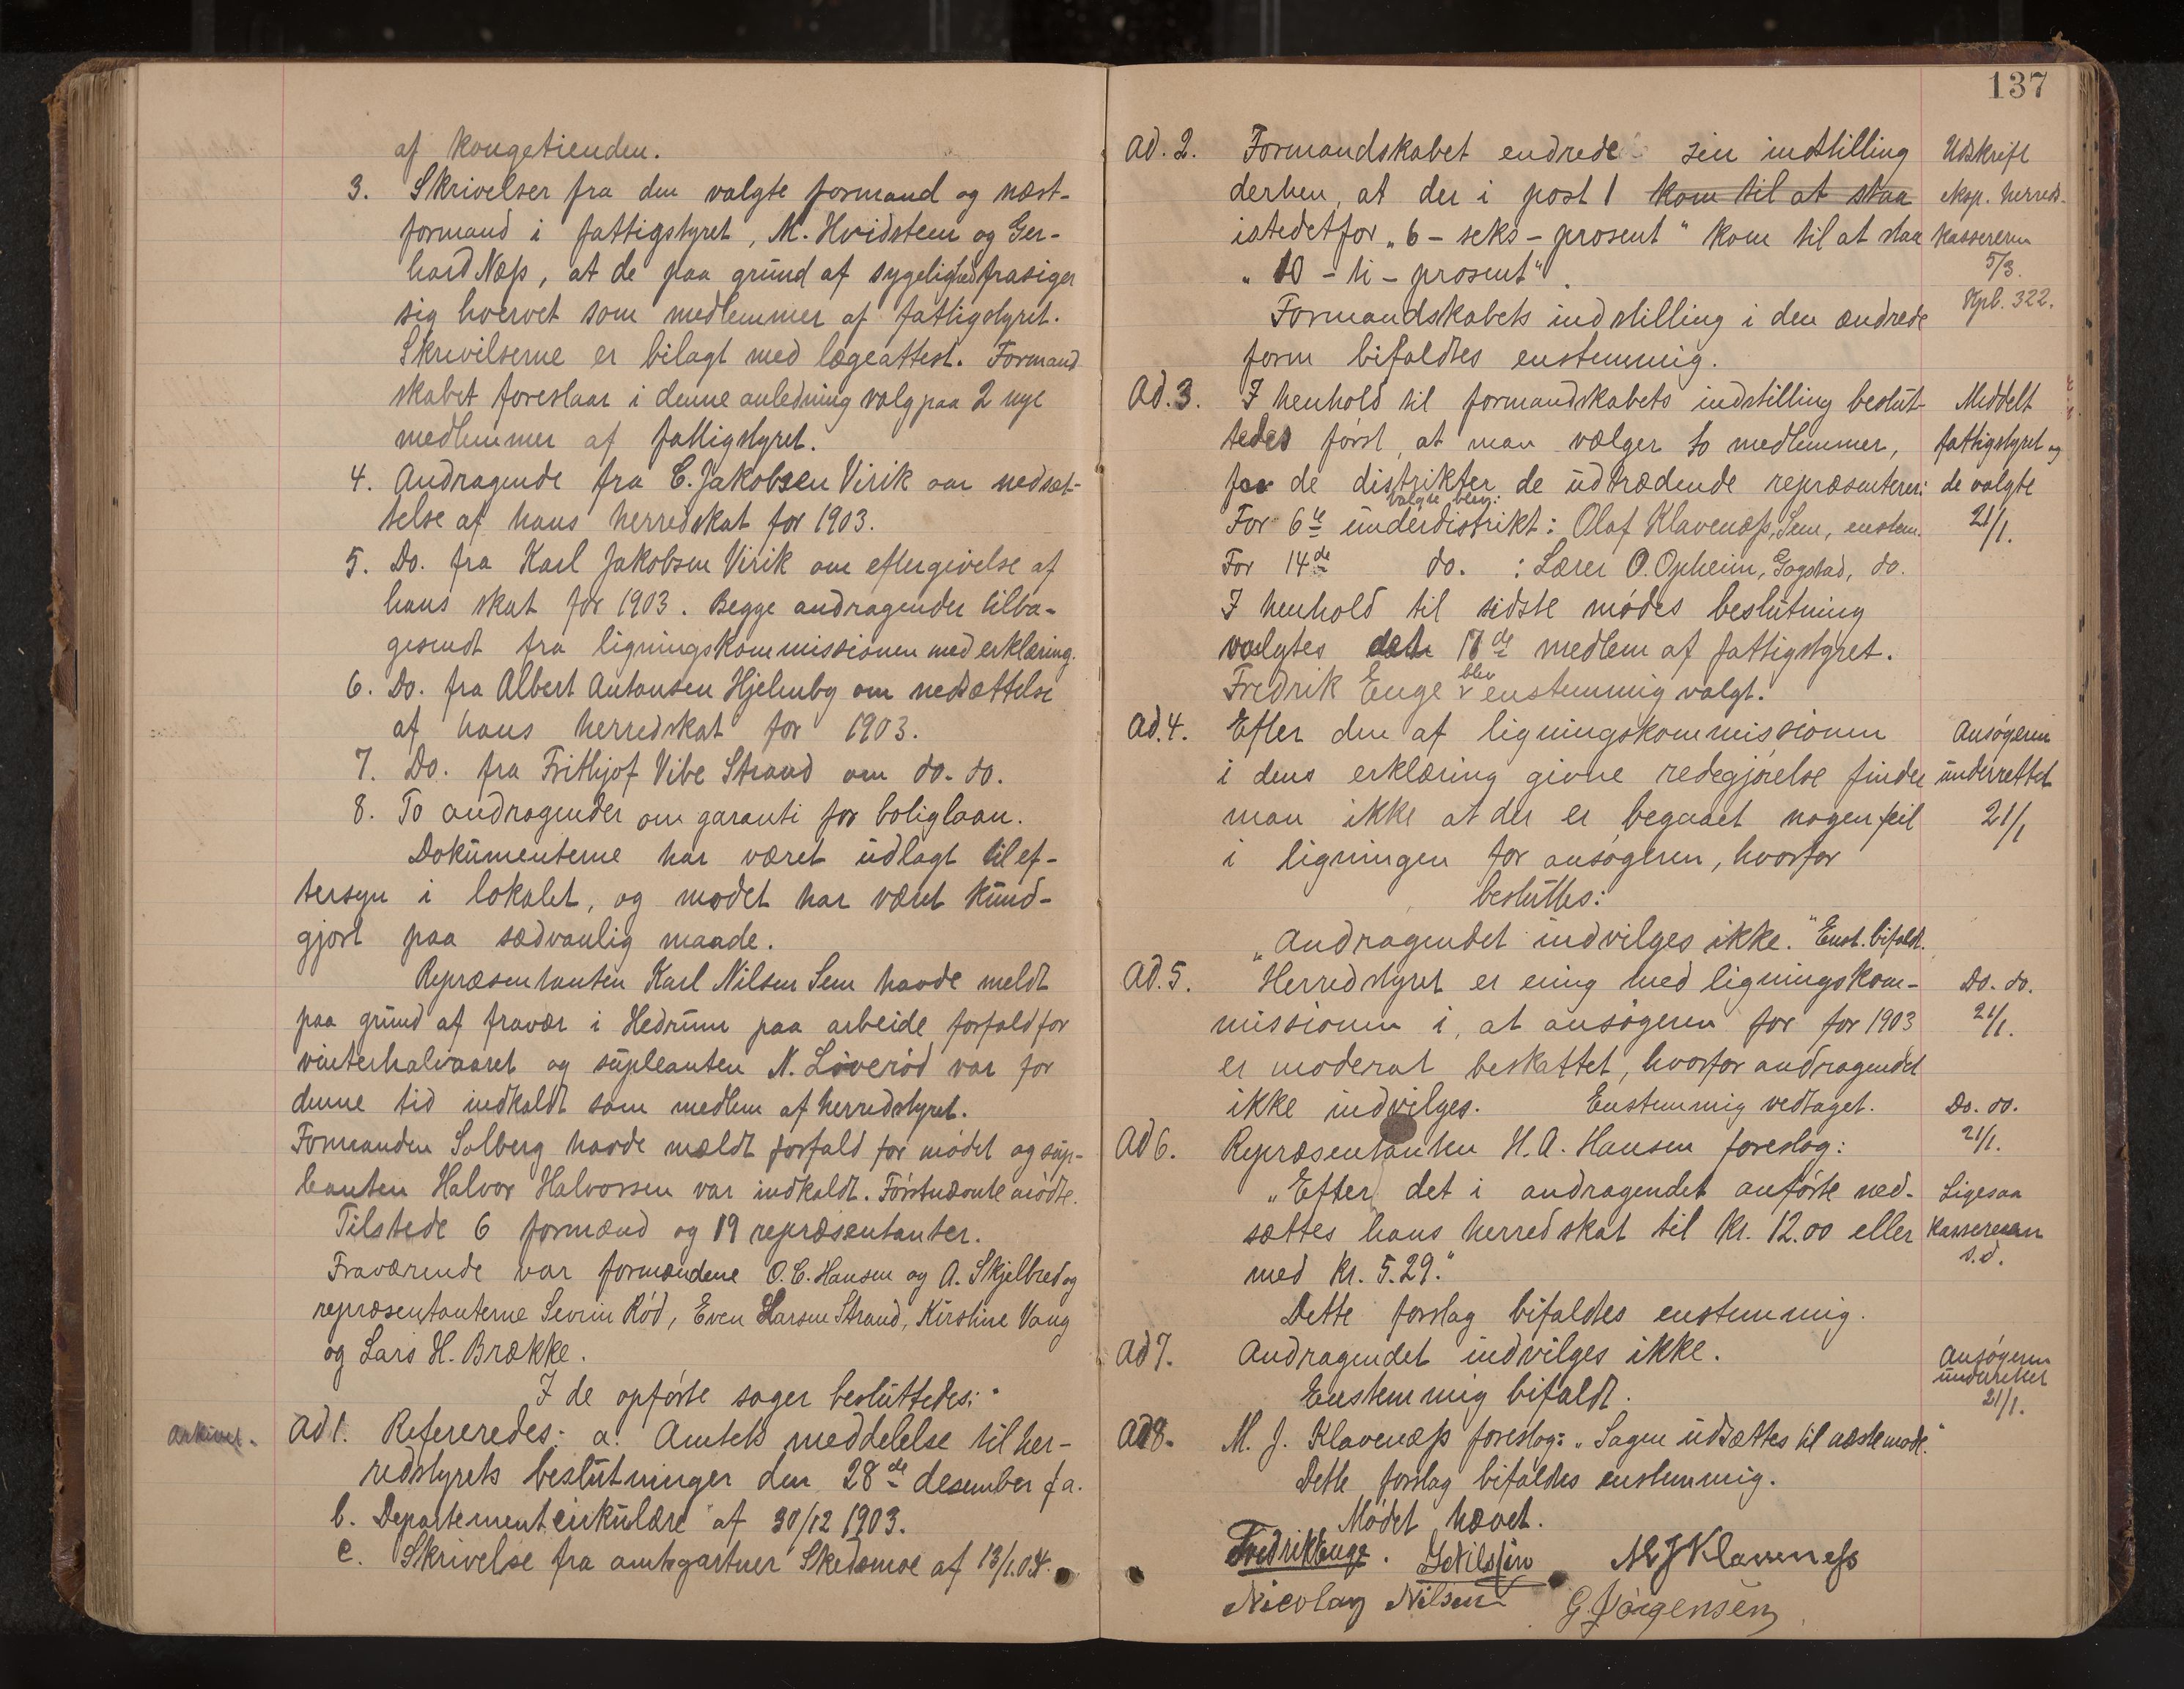 af kongetienden.
3. Skrivelser fra den valgte formand og næst-
formand i fattigstyret, M. Hvidsteen og Ger-
hard Næss, at de paa grund af sygelighed frasiger
sig hvervet som medlemmer af fattigstyret.
Skrivelserne er bilagt med lægeattest. Formand
skabet foreslaar i denne anledning valg paa 2 nye
medlemmer af fattigstyret.
4. Andragende fra C. Jakobsen Virik om nedsæt-
telse af hans herredskat for 1903.
5. Do. fra Karl Jakobsen Virik om eftergivelse af
hans skat for 1903. Begge andragender tilba-
gesendt fra ligningskommissionen med erklæring.
6. Do. fra Albert Antonsen Hjelmbg om nedsættelse
af hans herredskat for 1903.
7. Do. fra Frithjof Vibe Strand om do. do.
8. To andragender om garanti for boliglaan.
Dokumenterne har været udlagt til ef-
tersyn i lokalet, og mødet har været kund-
gjort paa sædvanlig maade.
Repræsentanten Karl Nilsen Sem havde meldt
paa grund af fravær i Hedrum paa arbeide forfald for
vinterhalvaaret og supleanten N. Løverød var for
denne tid indkaldt som medlem af herredstyret.
Formanden Solberg havde meldt forfald for mødet og sup-
leanten Halvor Halvorsen var indkaldt. Førstnævnte mødte.
Tilstede 6 formænd og 19 repræsentanter.
Fraværende var formændene O. C. Hansen og A. Skjelbred og
repræsentanterne Severin Rød, Even Larsen Strand, Kirstine Vang
og Lars H. Brække.
I de opførte sager besluttedes:
arkivet.
Ad 1. Refereredes: a. Amtets meddelelse til her-
redstyrets beslutninger den 28de desember f.a.
b. Departementcirkulære af 30/12 1903.
c. Skrivelse fra amtsgartner Skedsmoe af 13/1.04.
137
Ad. 2. Formandskabet endrede sin indstilling
derhen, at der i post 1 kom til at staa
istedetfor „6 - seks - prosent" kom til at staa
„10 - ti - prosent".
Formandskabets indstilling i den ændrede
form bifaldtes enstemmig.
Udskrift
eksp. herreds-
kassereren
5/3.
Kpb. 322.
Ad. 3. I henhold til formandskabets indstilling beslut-
tedes først, at man vælger to medlemmer,
for de distrikter de udtrædende repræsenterer:
valgte blev:
For 6te underdistrikt: Olaf Klavenæss, Sem, enstem.
For 14de do. : Lærer O. Opheim, Gogstad, do.
I henhold til sidste mødes beslutning
valgtes det 17de medlem af fattigstyret.
Fredrik Enge blev enstemmig valgt.
Meddelt
fattigstyret og
de valgte
21/1.
Ad. 4. Efter den af ligningskommissionen
i dens erklæring givne redegjørelse finder
man ikke at der er begaaet nogen feil
i ligningen for ansøgeren, hvorfor
besluttes:
„Andragendet indvilges ikke." Enst. bifaldt.
Ansøgeren
underrettet
21/1
Ad. 5. Herredstyret er enig med ligningskom-
missionen i, at ansøgeren for for 1903
er moderat beskattet, hvorfor andragendet
ikke indvilges. Enstemmig vedtaget.
Do. do.
21/1.
Ad 6. Repræsentanten H. A. Hansen foreslog:
„Efter det i andragendet anførte ned-
sættes hans herredskat til kr. 12.00 eller
med kr. 5.29."
Dette forslag bifaldtes enstemmig.
Do. do.
21/1.
Ligesaa
kassereren
s.d.
Ad 7. Andragendet indvilges ikke.
Enstemmig bifaldt.
Ansøgeren
underrettet
21/1.
Ad 8. M. J. Klavenæss foreslog: „Sagen udsættes til næste møde."
Dette forslag bifaldtes enstemmig.
Mødet hævet.
Fredrik Enge. Nilssen M J Klaveness
Nicolay Nilsen G Jørgensen